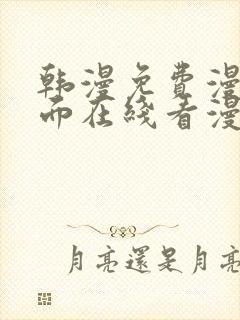 韩漫免費漫
而在线看漫
月亮還是月亮